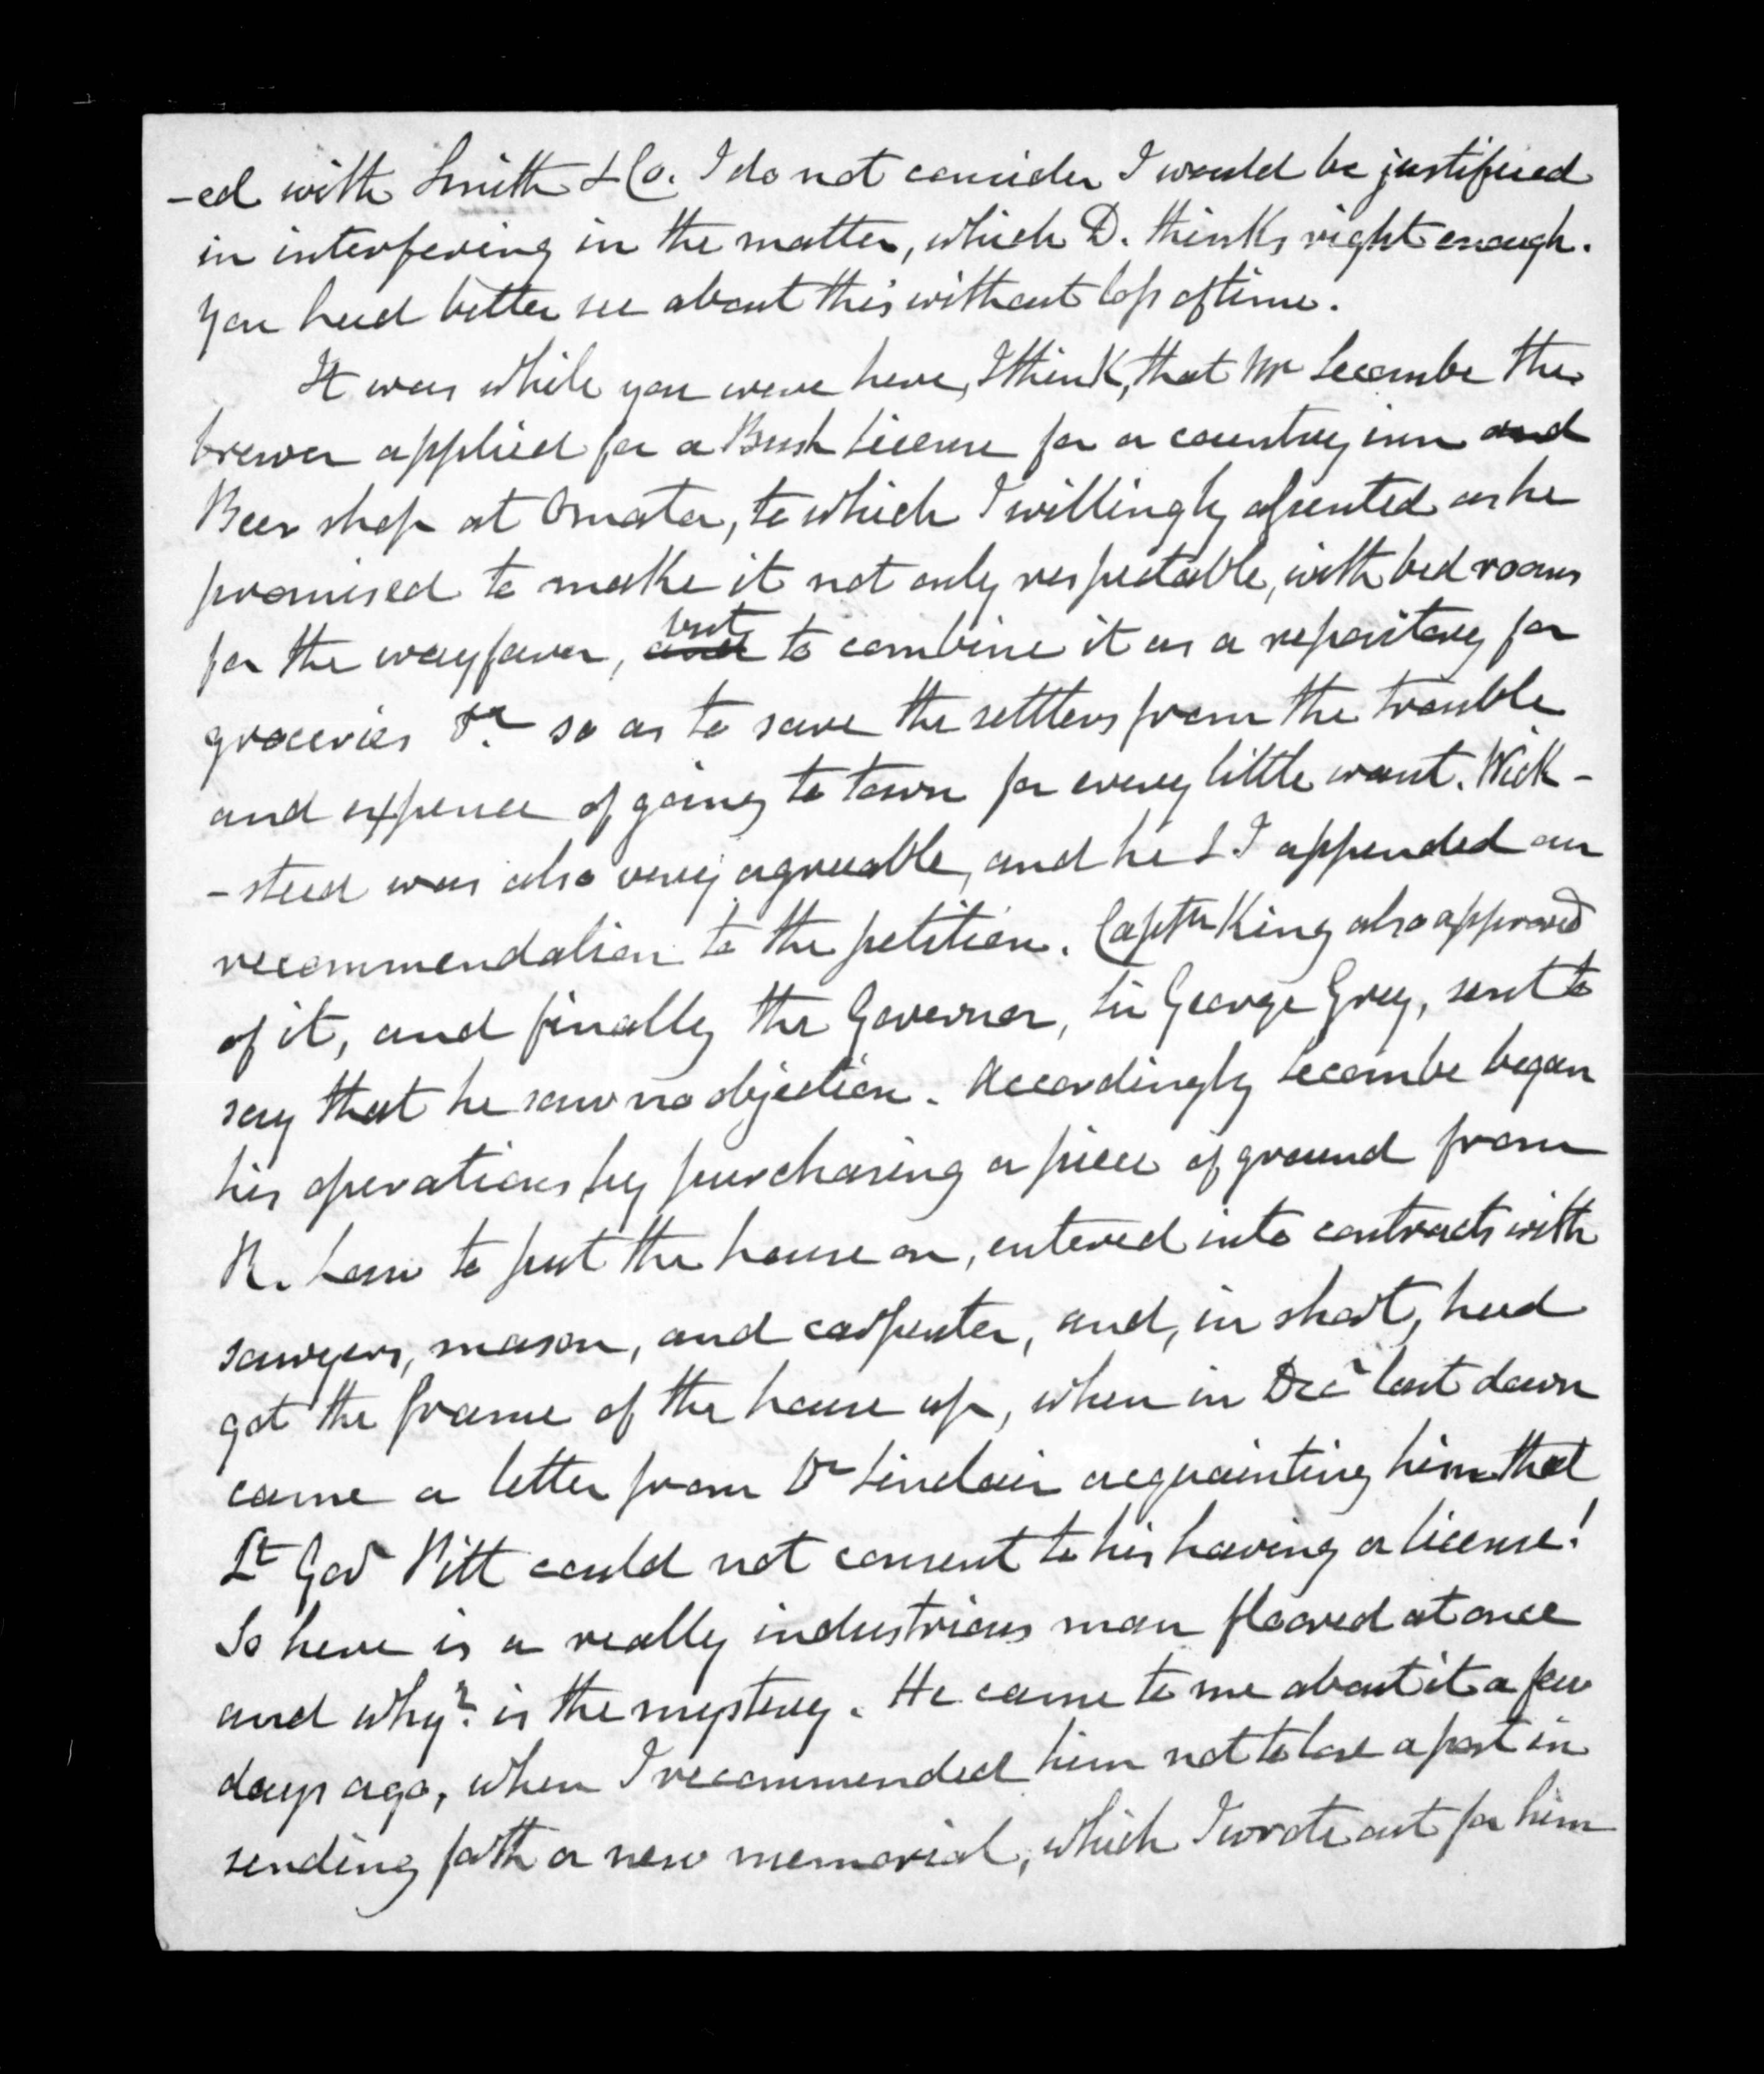 -ed with Smith & Co. I do not consider I would be justified
in interfering in the matter, which D. thinks right enough.
You had better see about this without loss of time.
It was while you were here, I think, that Mr Seccombe the
brewer applied for a Bush License for a country inn and
Beer shop at Omata, to which I willingly assented as he
promised to make it not only respectable, with bed rooms
for the wayfarer, but to combine it as a repository for
groceries &c so as to save the settlers from the trouble
and expense of going to town for every little want. Wick-
-steed was also very agreeable, and he & I appended our
recommendation to the petition. Captn King also approved
of it, and finally the Governor, Sir George Grey, sent to
say that he saw no objection. Accordingly Seccombe began
his operations by purchasing a piece of ground from
R. to put the house on, entered into contracts with
sawyers, mason, and carpenter, and, in short, had
got the frame of the house up, when in Decr last down
came a letter from Dr Sinclair acquainting him that
Lt Govr Pitt could not consent to his having a license!
So here is a really industrious man floored at once
and why? is the mystery. He came to me about it a few
days ago, when I recommended him not to lose a post in
sending forth a new memorial, which I wrote out for him